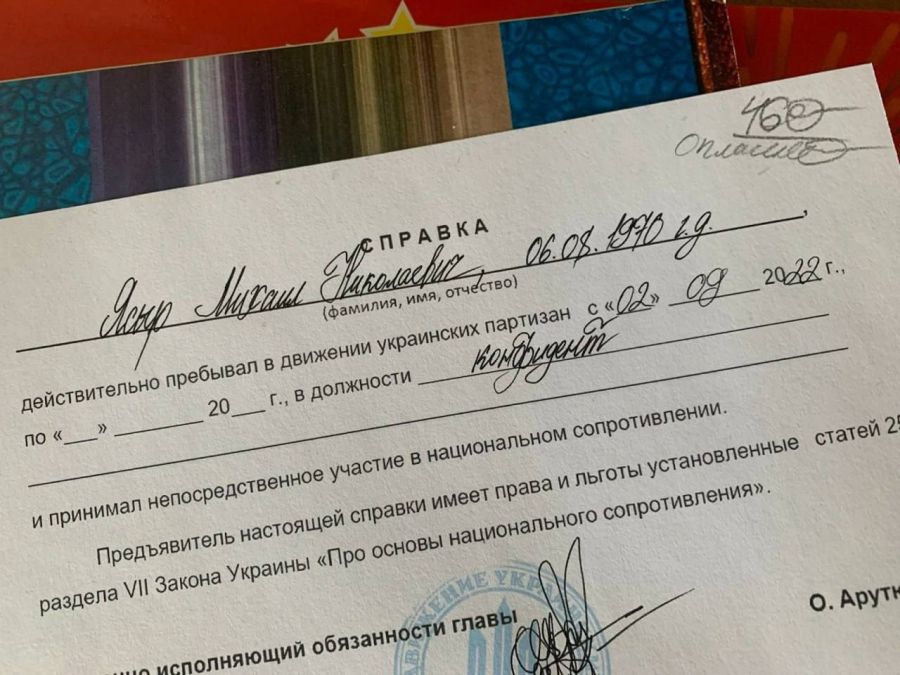 460
СПРАВКА
Ясыр Михаил Николаевич, 06.08.1970 г.р.,
(фамилия, имя, отчество)
действительно пребывал в движении украинских партизан с «02» 09 2022 г.,
по «___» ________ 20___ г., в должности конфидент
и принимал непосредственное участие в национальном сопротивлении.
Предъявитель настоящей справки имеет права и льготы установленные статей 25
раздела VII Закона Украины «Про основы национального сопротивления».
ДВИЖЕНИЕ УКРАИН
исполняющий обязанности главы
О. Арутю